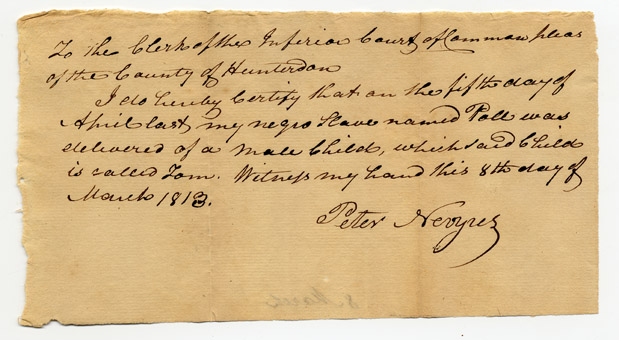 To the Clerk of the Inferior Court of Common pleas
of the County of Hunterdon
I do hereby Certify that on the fifth day of
April last my negro Slave named Poll was
delivered of a Male Child, which said Child
is called Tom. Witness my hand this 8th day of
March 1813.
Peter Nevyus